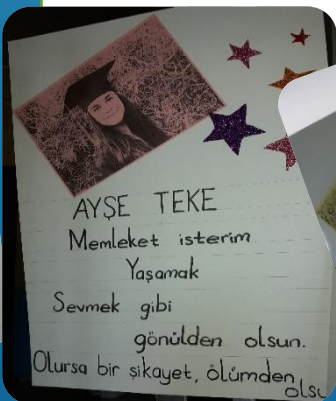 AYŞE TEKE
Memleket isterim
Yaşamak
Sevmek gibi
gönülden olsun.
Olursa bir şikayet, ölümden
olsu